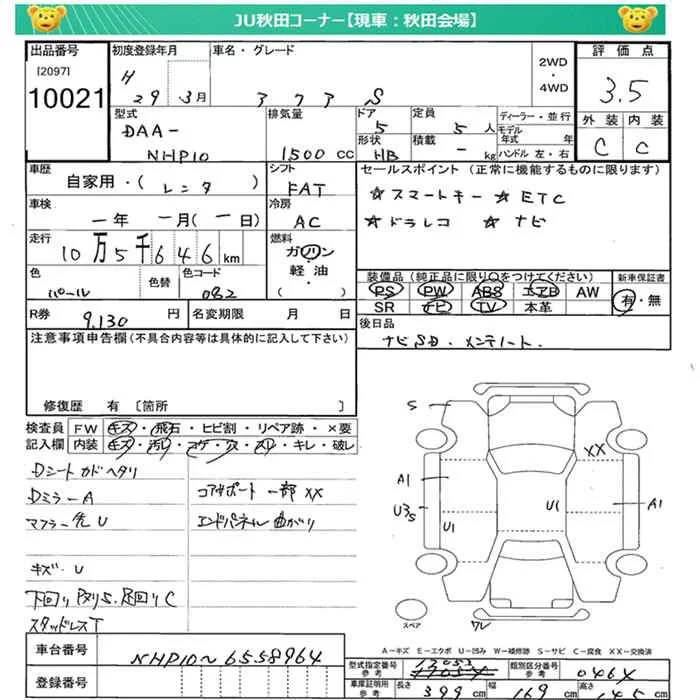 JU秋田コーナー【現車：秋田会場】
出品番号
[2097]
10021
初度登録年月
H
29 3月
車名・グレード
アクア S
2WD
・
4WD
評価点
3.5
外装 内装
C C
型式
DAA-
NHP10
排気量
1500 CC
ドア
5
形状
HB
定員
5 人
積載
- kg
ディーラー・並行
モデル
年式 年
ハンドル 左・右
車歴
自家用・( レンタ )
シフト
FAT
セールスポイント（正常に機能するものに限ります）
☆スマートキー ☆ETC
☆ドラレコ ☆ナビ
車検
一年 一月(一日)
冷房
AC
走行
10万5千646km
燃料
ガソリン
軽油
( )
色
パール
色替
色コード
082
装備品（純正品に限り○をつけてください）
PS PW ABS エアB AW
SR ナビ TV 本革
新車保証書
有・無
R券
9,130 円
名変期限 月 日
後日品
ナビSD．メンテノート．
注意事項申告欄（不具合内容等は具体的に記入して下さい）
修復歴 有〔箇所 〕
検査員
記入欄
FW キズ・飛石・ヒビ割・リペア跡・×要
内装 キズ・汚レ・コゲ・穴・スリ・キレ・破レ
Dシート カドヘタリ
Dミラー A
マフラー先 U
キズ．U
下回りサビS．足回りC
スタッドレスT
コアサポート一部 XX
エンドパネル曲がり
S
XX
A1
U3/S
U1
U1
A1
ワレ
スペア
A－キズ E－エクボ U－凹み W－補修跡 S－サビ C－腐食 XX－交換済
車台番号
NHP10～6558964
登録番号
型式指定番号
参考
17053
類別区分番号
参考
0464
車庫証明用
参考
長さ
399 cm
幅
169 cm
高さ
cm